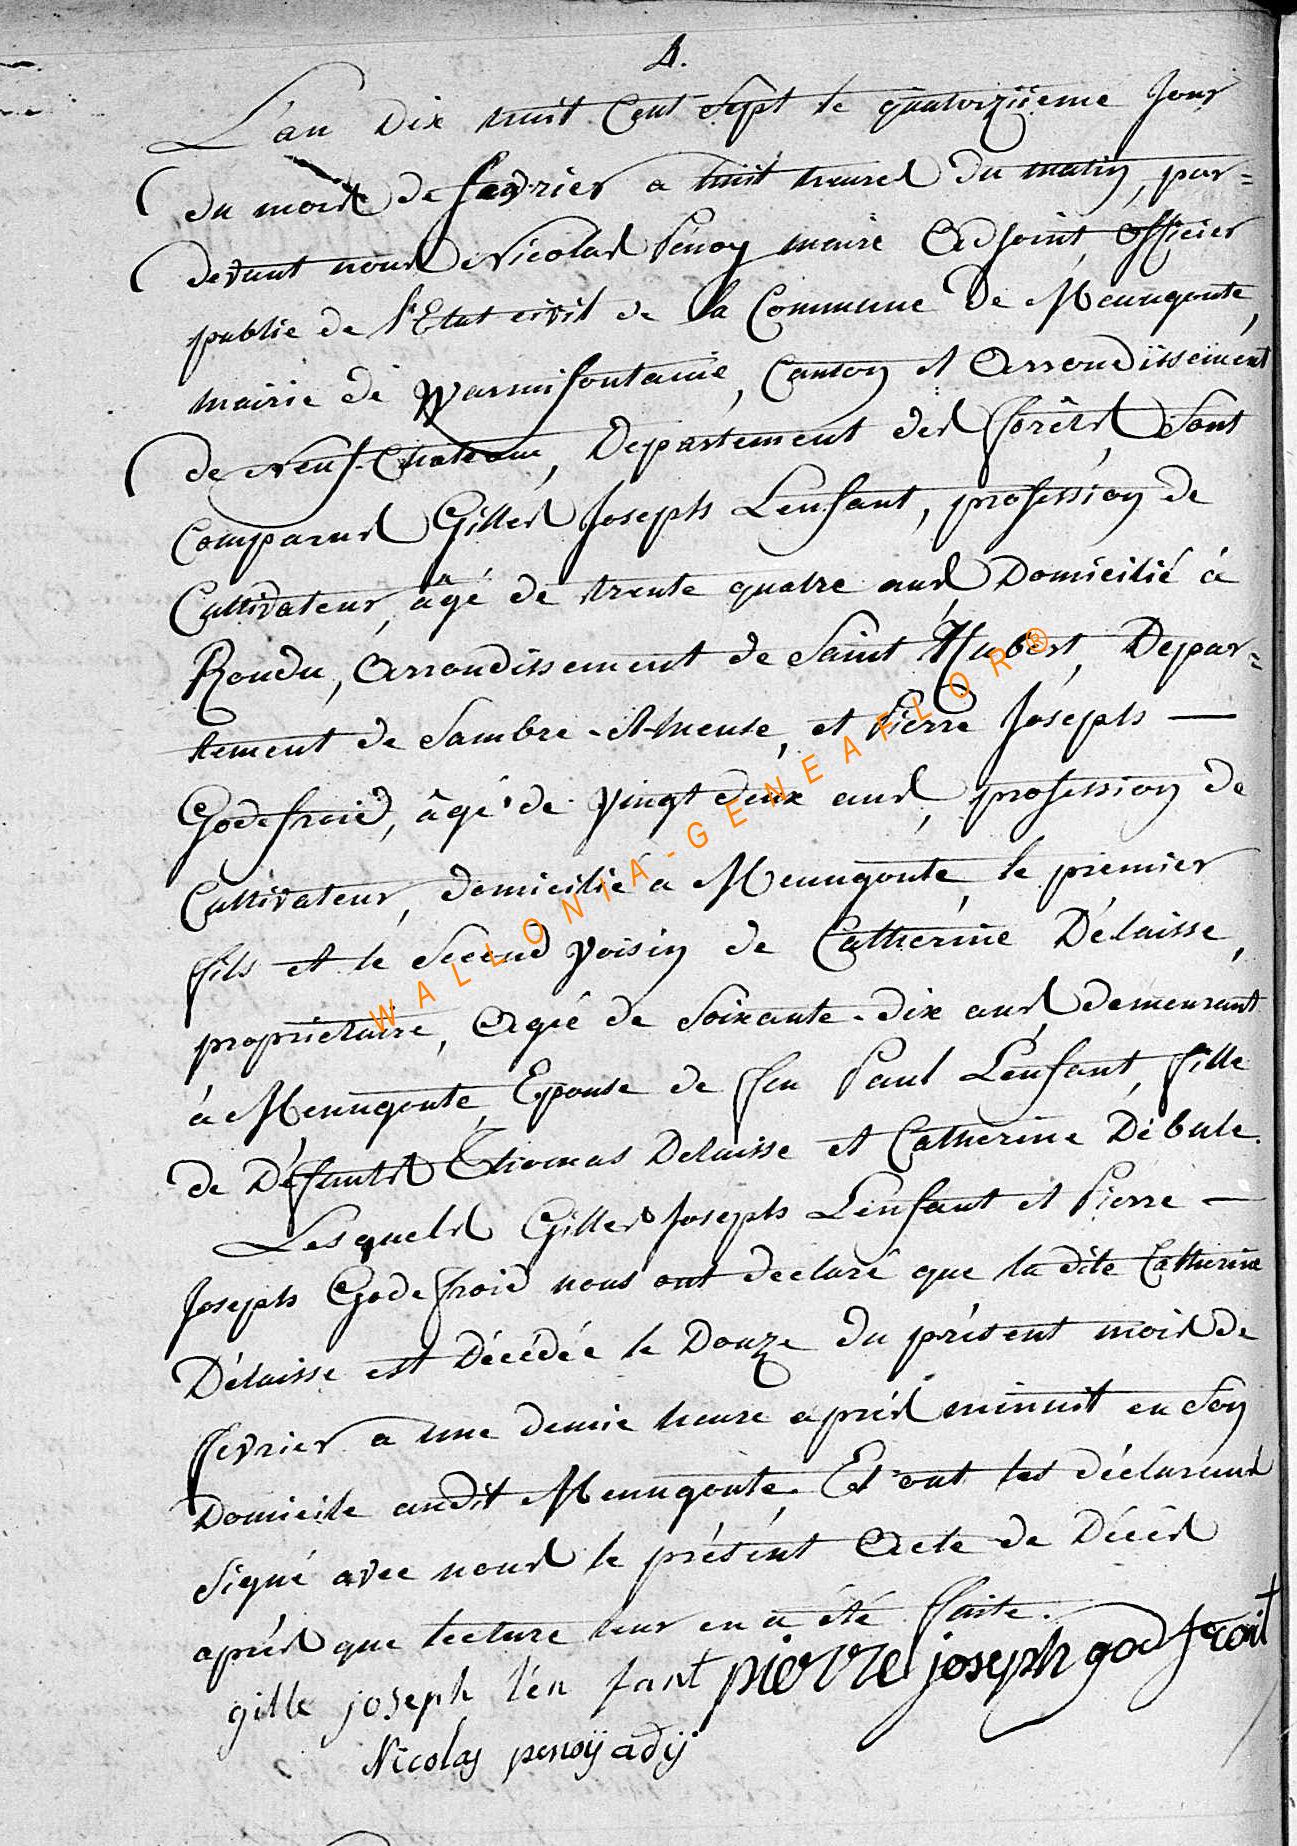 4.
L'an dix huit Cent Sept le quatorzïeme Jour
du mois de fevrier a huit heures du matin, par=
devant nous Nicolas Penoy maire Adjoint, officier
public de l'Etat civil de la Commune de Menugoutte,
mairie de Warmifontaine, Canton et Arrondissement
de Neuf-Chateau, Departement des fforêts, Sont
Comparus Gilles Joseph Lenfant, profession de
Cultivateur, âgé de trente quatre ans Domicilié à
Rondu, Arrondissement de Saint Hubert, Depar=
tement de Sambre-et-meuse, et Pierre Joseph —
Godefroid, âgé de vingt deux ans, profession de
Cultivateur, domicilié à Menugoutte, le premier
ffils et le Second voisin de Catherine Délaisse,
propriétaire, Agée de Soixante-dix ans demeurant
à Menugoutte, Epouse de ffeu Paul Lenfant, fille
de Défunts Thomas Delaisse et Catherine Débule.
Lesquels Gilles Joseph Lenfant et Pierre —
Joseph Godefroid nous ont declaré que la dite Catherine
Délaisse est Décédée le Douze du présent mois de
ffevrier a une demie heure après minuit en Son
Domicile audit Menugoutte. Et ont les déclarants
Signé avec nous le présent Acte de Décès
après que lecture leur en a été ffaite.
gille joseph l'en fant pierre joseph godfroit
Nicolas penoÿ adÿ
WALLONIA-GENEAFLOR®